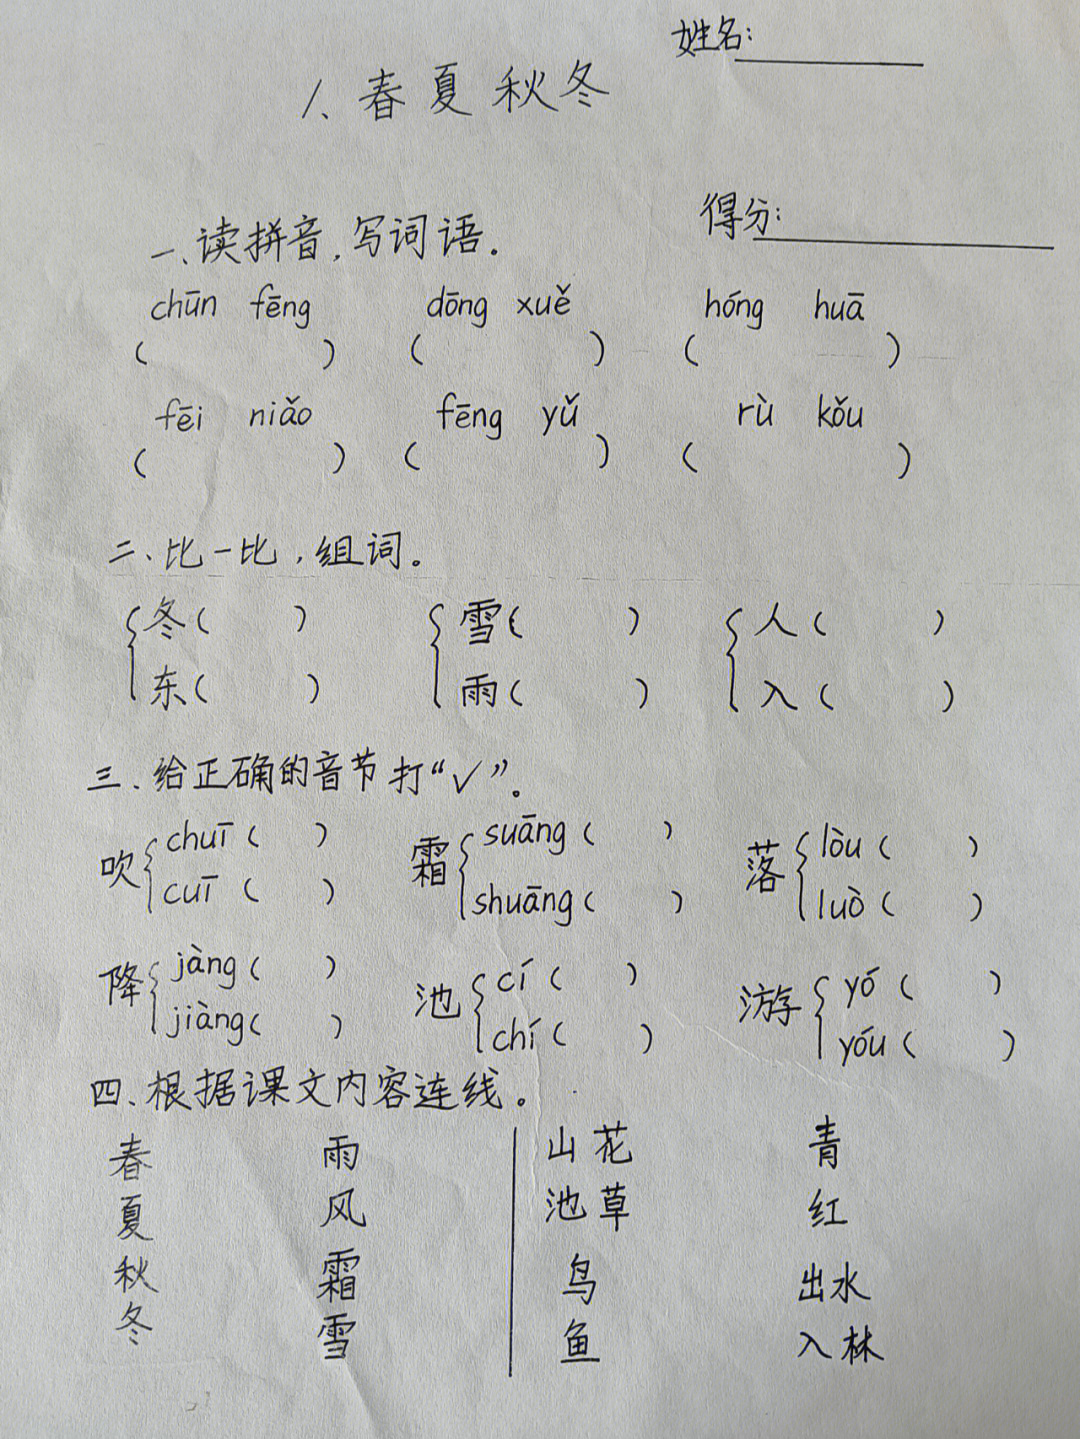 姓名:
1、春夏秋冬
得分:
一、读拼音,写词语。
chūn fēng dōng xuě hóng huā
( ) ( ) ( )
fēi niǎo fēng yǔ rù kǒu
( ) ( ) ( )
二、比一比,组词。
冬( ) 雪( ) 人( )
东( ) 雨( ) 入( )
三、给正确的音节打“√”。
吹 chuī( ) 霜 suāng( ) 落 lòu( )
cuī( ) shuāng( ) luò( )
降 jàng( ) 池 cí( ) 游 yó( )
jiàng( ) chí( ) yóu( )
四、根据课文内容连线。
春 雨 山花 青
夏 风 池草 红
秋 霜 鸟 出水
冬 雪 鱼 入林